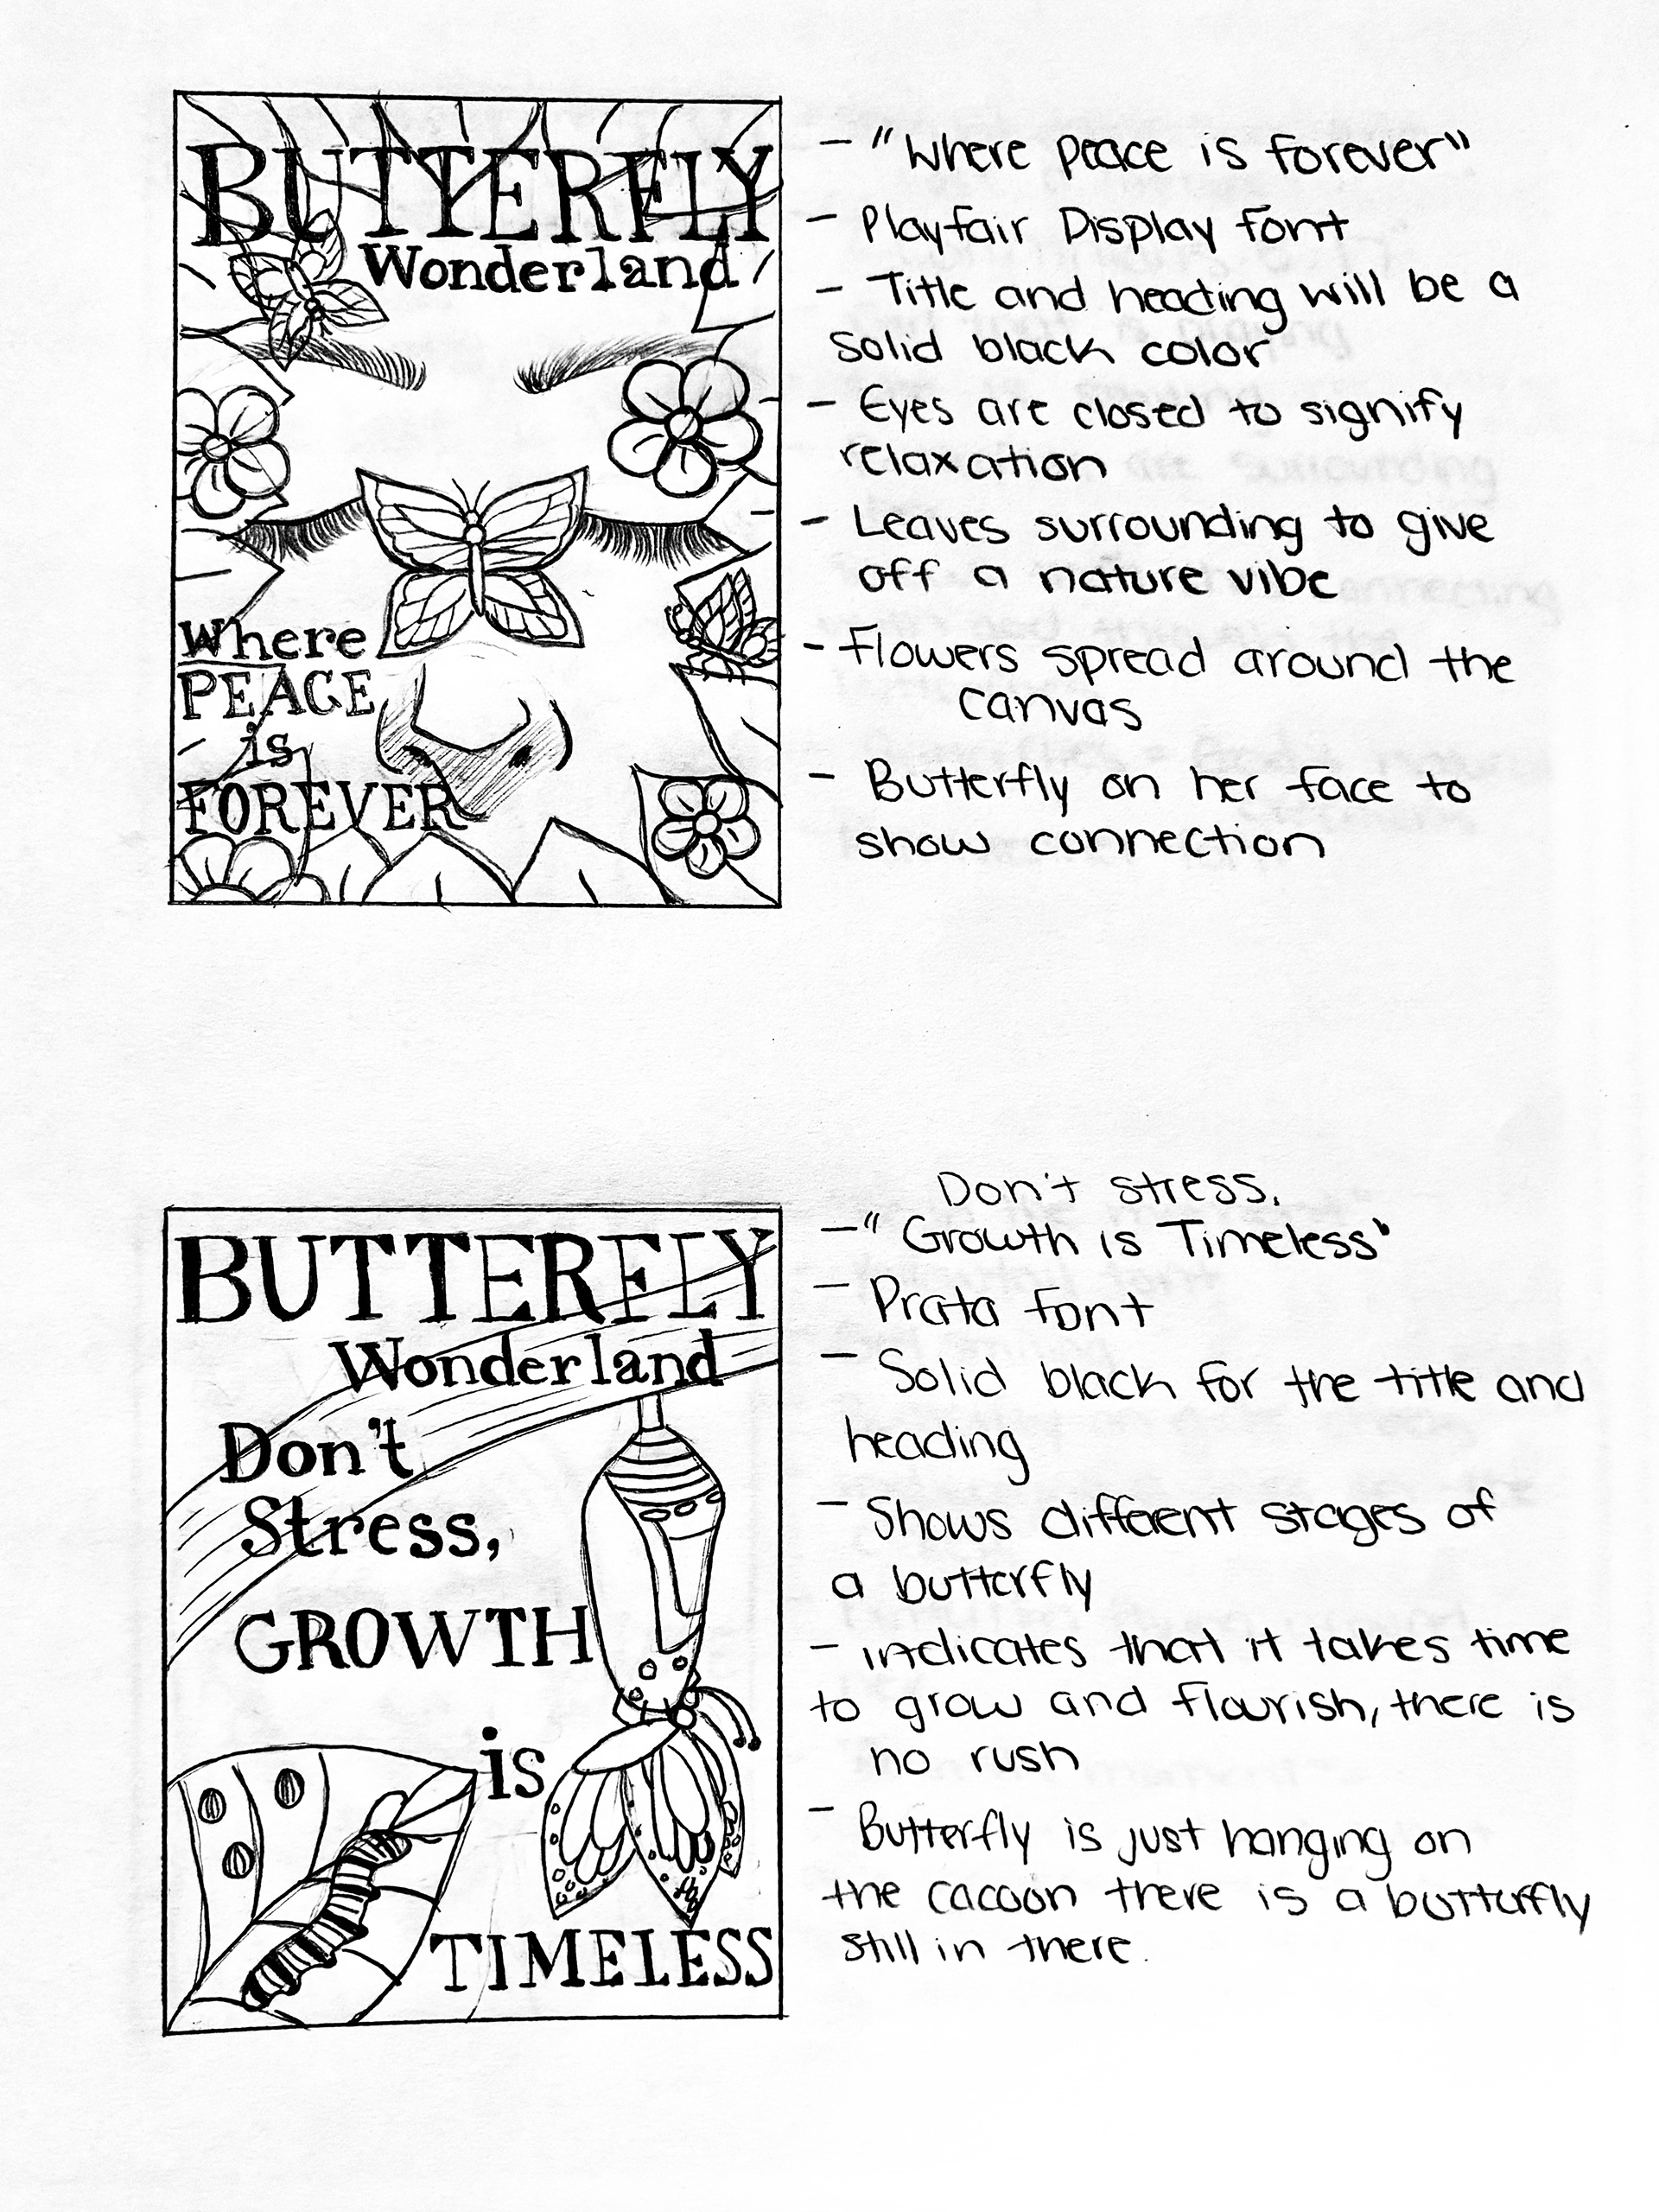 BUTTERFLY
Wonderland
Where
PEACE
is
FOREVER
- "Where peace is forever"
- Playfair Display font
- Title and heading will be a
solid black color
- Eyes are closed to signify
relaxation
- Leaves surrounding to give
off a nature vibe
- Flowers spread around the
canvas
- Butterfly on her face to
show connection
BUTTERFLY
Wonderland
Don't
Stress,
GROWTH
is
TIMELESS
Don't stress.
- "Growth is Timeless"
- Prata font
- Solid black for the title and
heading
- Shows different stages of
a butterfly
- indicates that it takes time
to grow and flourish, there is
no rush
- Butterfly is just hanging on
the cacoon there is a butterfly
still in there.